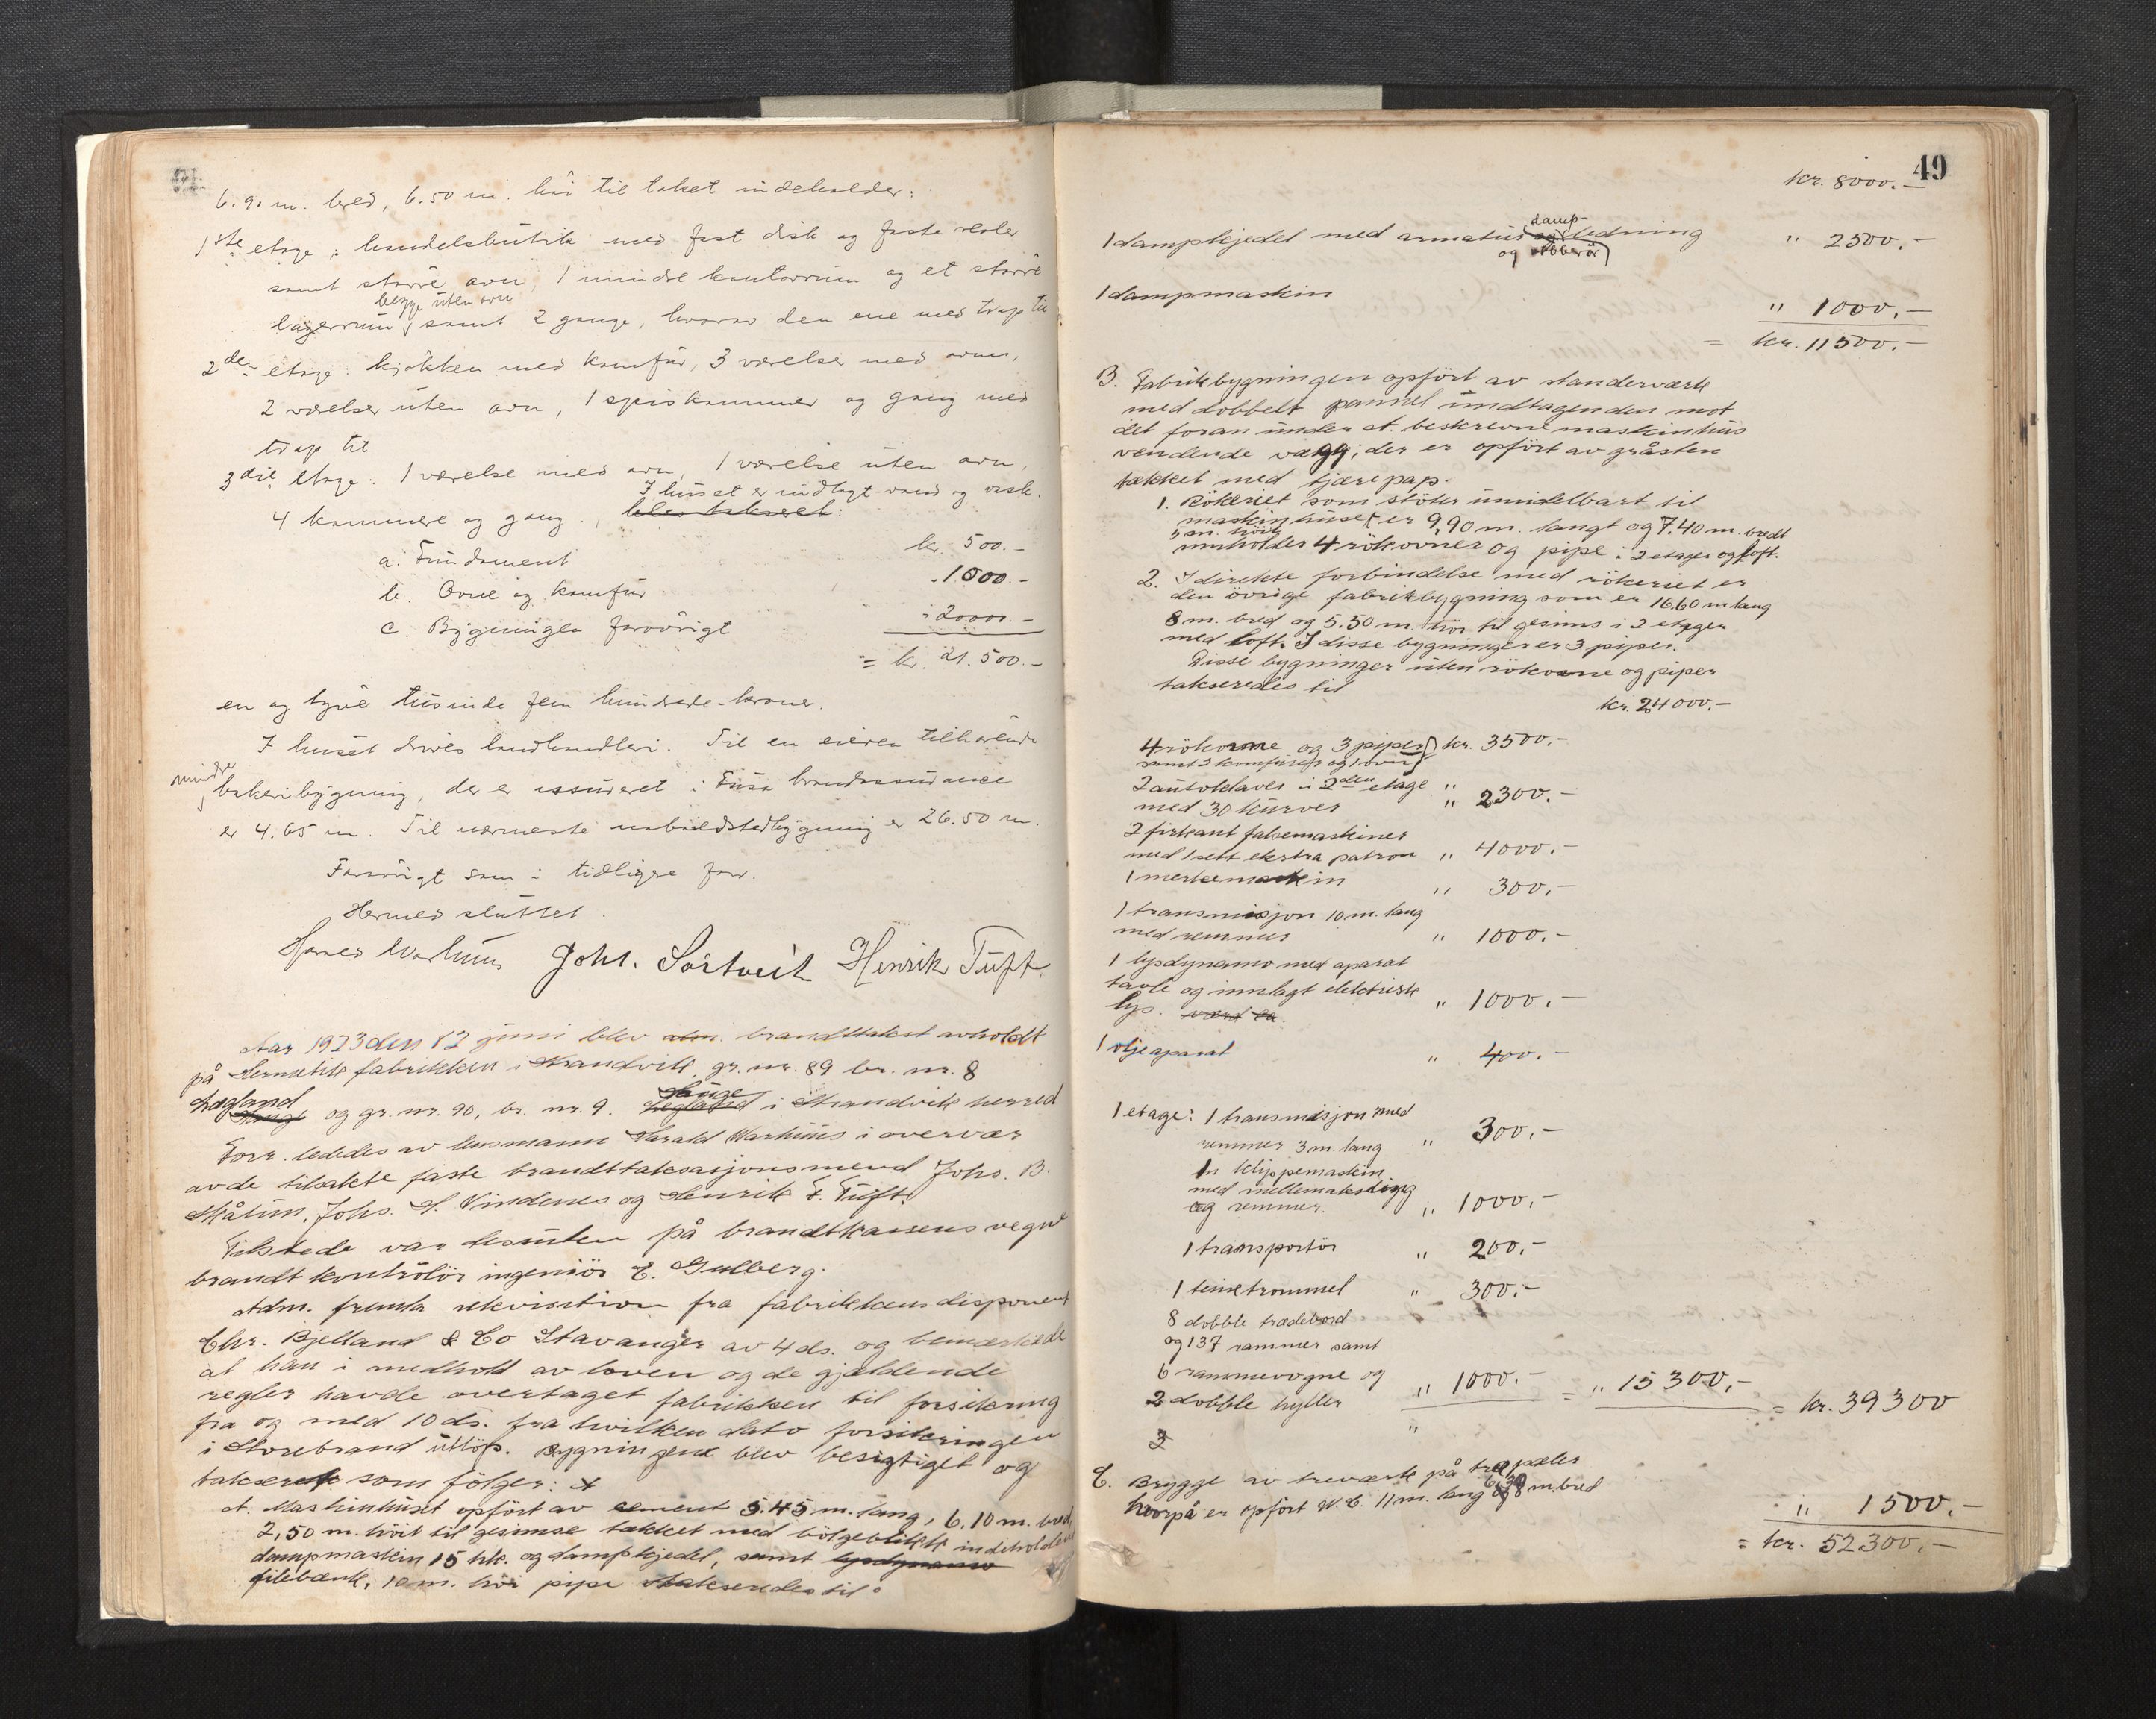 6.90 m. bred, 6.50 m. høi til taket indeholder:
1ste etage: handelsbutik med fast disk og faste reoler
samt større ovn, 1 mindre kontorrum og et større
begge uten ovn
lagerrum, samt 2 gange, hvorav den ene med trap til
2den etage: kjøkken med komfür, 3 værelser med ovne,
2 værelser uten ovn, 1 spiskammer og gang med
trap til
3die etage: 1 værelse med ovn, 1 værelse uten ovn,
I huset er indlagt vand og vask.
4 kammere og gang.
a. Fundament kr. 500.-
b. Ovne og komfür " 1000.-
c. Bygningen forøvrigt " 20000.-
= kr. 21.500.-
en og tyve tusinde fem hundrede kroner.
I huset drives landhandleri. Til en eieren tilhørende
mindre
bakeribygning, der er assureret i Fusa brandassurance
er 4.65 m. Til nærmeste nabos bygning er 26.50 m.
Forøvrigt som i tidligere forr.
Hermed sluttet.
Harald Warhuus Johs. Sörtveit Henrik Tüft.
Aar 1923 den 12 juni blev alm. brandttakst avholdt
på Hermetik fabrikken i Strandvik, gr. nr. 89 br. nr. 8
Lægland Haüge
og gr. nr. 90, br. nr. 9. Lægland i Strandvik herred
Forr. lededes av lensmann Harald Warhüus i overvær
av de tilsakte faste brandttaksasjonsmend Johs. B.
Skåtun, Johs. S. Vindenes og Henrik F. Tüft.
Tilstede var desüten på brandtkassens vegne
brandtkontrolör ingeniör E. Gulberg.
Adm. fremla rekvisition fra fabrikkens disponent
Chr. Bjelland & Co Stavanger av 4 ds. og bemerkede
at han i medhold av loven og de gjældende
regler havde overtaget fabrikken til forsikring
fra og med 10 ds. fra hvilken dato forsikringen
i Storebrand utlöp. Bygningene blev besigtiget og
takseret som fölger:
A. Maskinhüset opfört av cement 5.45 m. lang, 6.10 m. bred,
2,50 m. höit til gesimse tækket med bölgeblikk indeholder
dampmaskin 15 hk. og dampkjedel, samt lysdynamo
filebænk, 10 m. höi pipe takseredes til:
49
kr. 8000.-
damp-
1 dampkjedel med armatür og ledning " 2500.-
og kobberör
1 dampmaskin " 1000.-
= kr. 11500.-
B. Fabrikbygningen opfört av standerværk
med dobbelt pannel ündtagenden mot
det foran ünder A. beskrevne maskinhüs
vendende vægg, der er opfört av gråsten
tækket med tjærepap.
1. Rökeriet som stöter ümidelbart til
maskinhüset er 9,90 m. langt og 7.40 m. bredt
5 m. höit
innholder 4 rökovner og pipe i 2 etager og loft.
2. I direkte forbindelse med rökeriet er
den övrige fabrikbygning som er 16.60 m lang
8 m. bred og 5.50 m. höi til gesims i 2 etager
med loft. I disse bygninger er 3 piper.
Disse bygninger üten rökovne og piper
takseredes til
kr. 24000.-
4 rökovne og 3 piper kr. 3500.-
samt 3 komfürer og 1 ovn
2 autoklaver i 2den etage "
med 30 kürver " 2300.-
2 firkant falsemaskiner
med 1 sett ekstra patron " 4000.-
1 merkemaskin " 300.-
1 transmisjon 10 m. lang
med remmer " 1000.-
1 lysdynamo med aparat
tavle og innlagt elektrisk " 1000.-
lys.
1 oljeaparat " 400.-
1 etage: 1 transmisjon med
remmer 3 m. lang " 300.-
1 klippemaskin
med mellemaksling
og remmer. " 1000.-
1 transportör " 200.-
1 teinetrommel " 300.-
8 dobble trædebord
og 137 rammer samt
6 rammevogne og
2 dobble hyller " 1000.- = " 15300.- = kr. 39300
"
C. Brygge av treværk på træpæler
hvorpå er opfört W.C. 11 m. lang og 8 m. bred " 1500.-
= kr. 52300.-